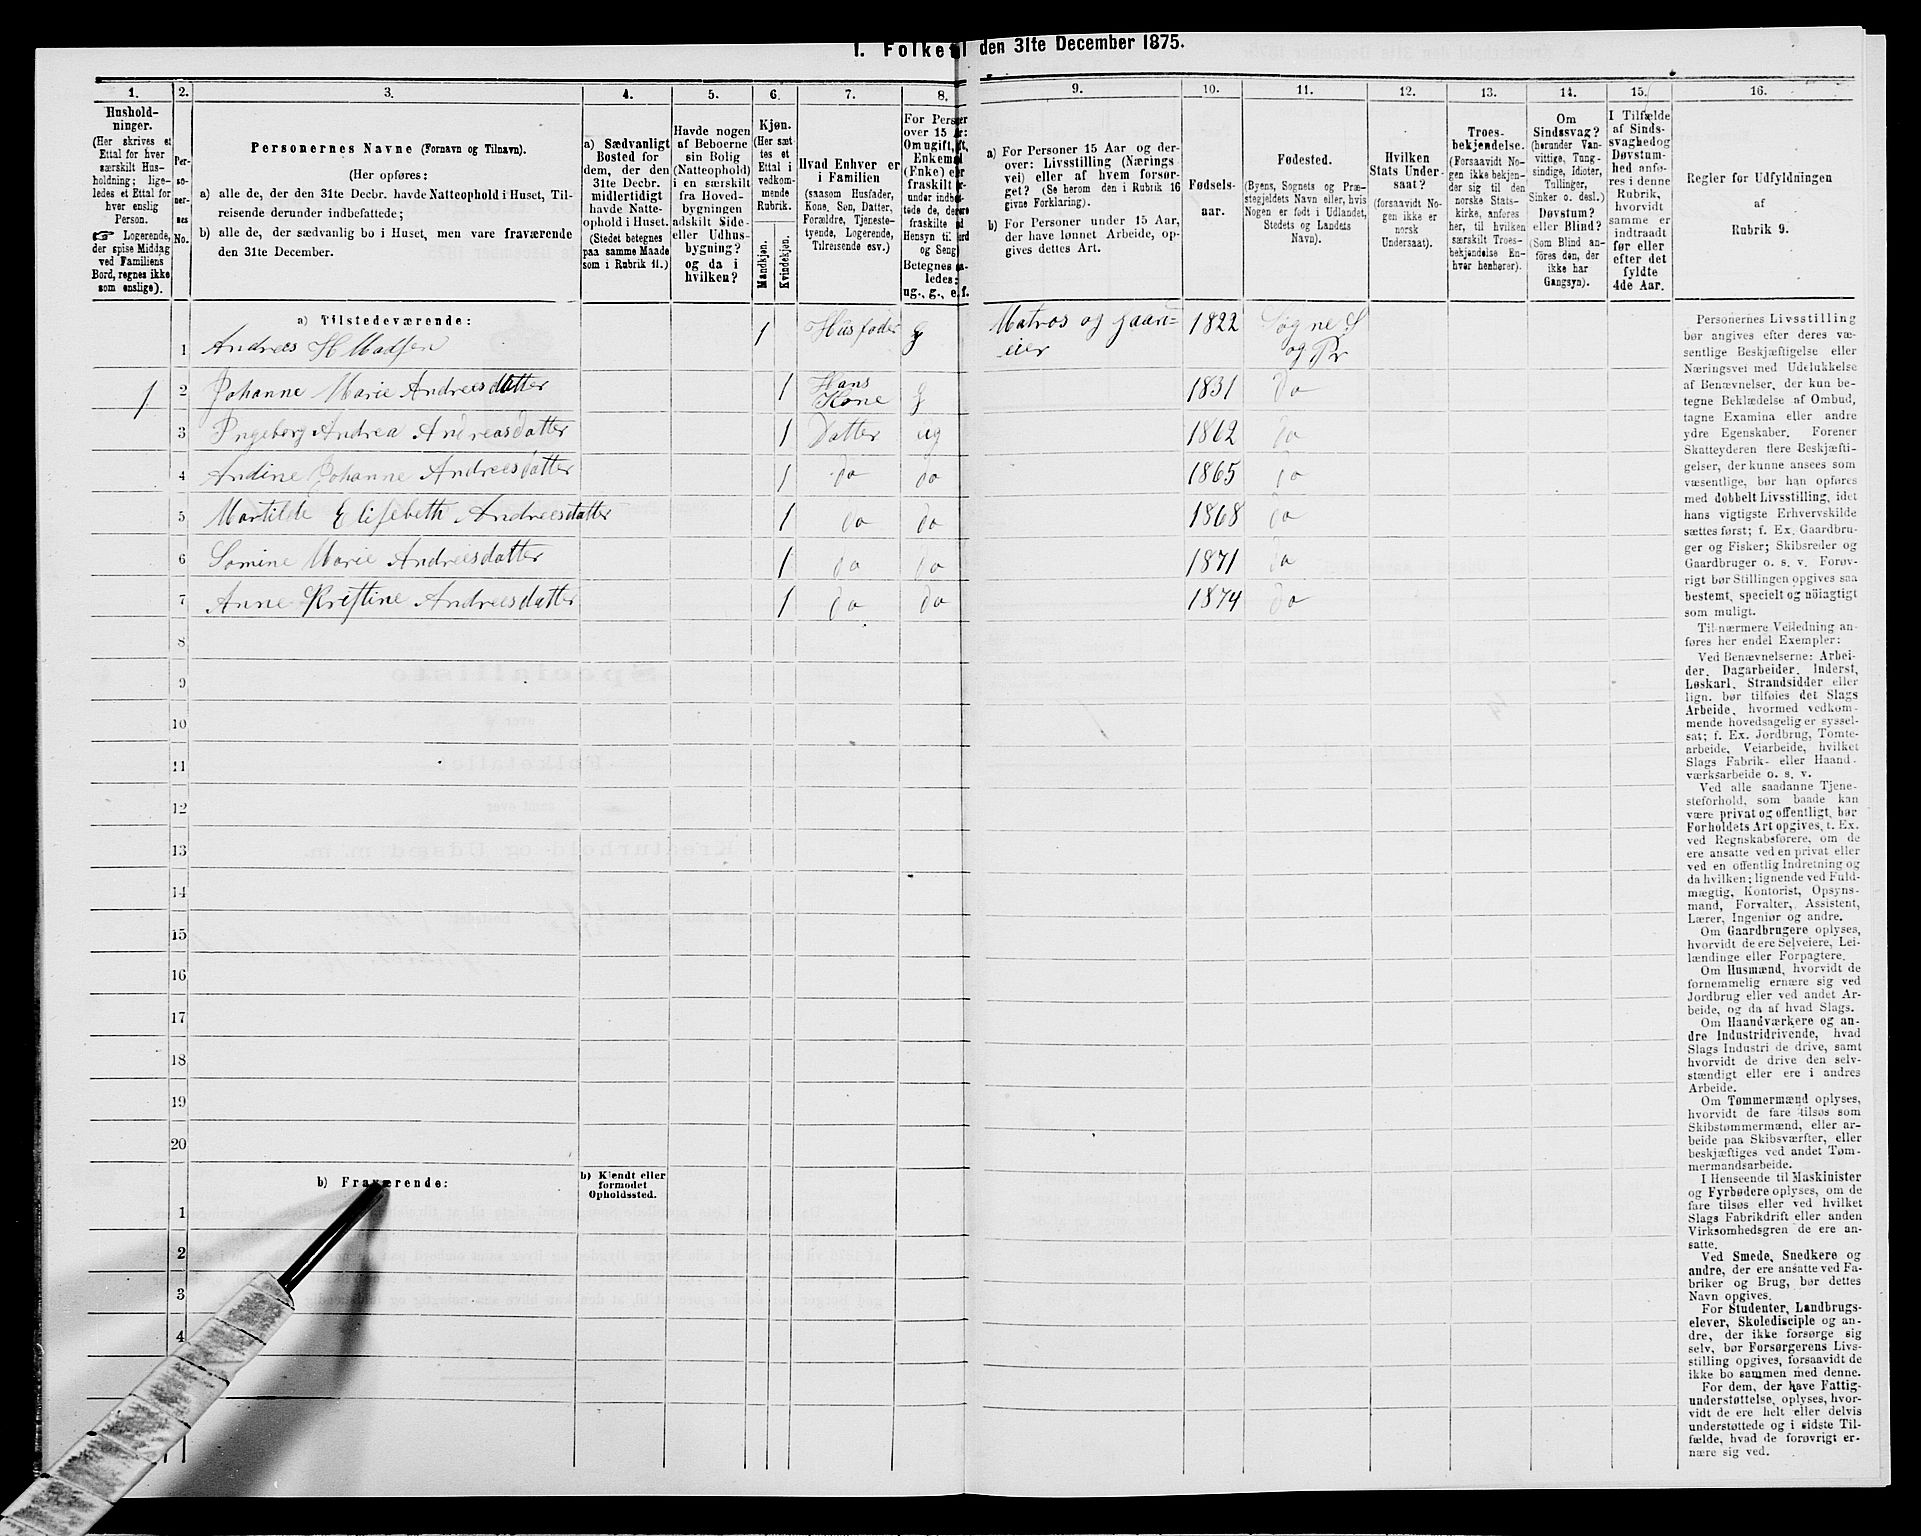 1. Folketal den 31te December 1875.
1.
Hushold-
ninger.
(Her skrives et
Ettal for hver
særskilt Hus-
holdning; lige-
ledes et Ettal for
hver enslig
Person.
☞ Logerende,
der spise Middag
ved Familiens
Bord, regnes ikke
som enslige).
2.
Per-
so-
ner-
nes
No.
3.
Personernes Navne (Fornavn og Tilnavn).
(Her opføres:
a) alle de, der den 31te Decbr. havde Natteophold i Huset, Til-
reisende derunder indbefattede;
b) alle de, der sædvanlig bo i Huset, men vare fraværende
den 31te December.
4.
a) Sædvanligt
Bosted for
dem, der den
31te Decbr.
midlertidigt
havde Natte-
ophold i Huset.
(Stedet betegnes
paa samme Maade
som i Rubrik 11.)
5.
Havde nogen
af Beboerne
sin Bolig
(Natteophold)
i en særskilt
fra Hoved-
bygningen
adskilt Side-
eller Udhus-
bygning?
og da i
hvilken?
6.
Kjøn.
(Her sæt
tes et
Ettal i
vedkom-
mende
Rubrik.
Mandkjøn.
Kvindekjøn.
7.
Hvad Enhver er
i Familien
(saasom Husfader,
Kone, Søn, Datter,
Forældre, Tjeneste-
tyende, Logerende,
Tilreisende osv.)
8.
For Personer
over 15 Aar:
Om ugift, gift,
Enkemand
(Enke) eller
fraskilt
Betegnes saa-
ledes:
ug., g., e., f.
9.
a) For Personer 15 Aar og der-
over: Livsstilling (Nærings
vei) eller af hvem forsør-
get? (Se herom den i Rubrik 16
givne Forklaring).
b) For Personer under 15 Aar,
der have lønnet Arbeide, op-
gives dettes Art.
10.
Fødsels-
aar.
11.
Fødested.
(Byens, Sognets og Præ-
stegjeldets Navn eller, hvis
Nogen er født i Udlandet,
Stedets og Landets
Navn).
12.
Hvilken
Stats Under-
saat?
(forsaavidt No-
gen ikke er
norsk
Undersaat).
13.
Troes-
bekjendelse.
(Forsaavidt No-
gen ikke bekjen-
der sig til den
norske Stats-
kirke, anføres
her, til hvilken
særskilt Troes-
bekjendelse En-
hver henhører).
14.
Om
Sindssvag?
(herunder Van-
vittige, Tung-
sindige, Idioter,
Tullinger,
Sinker o. desl.)
Døvstum?
eller Blind?
(Som Blind an-
føres den, der
ikke har
Gangsyn).
15.
I Tilfælde
af Sinds-
svaghed og
Døvstum-
hed anfø-
res i denne
Rubrik,
hvorvidt
samme er
indtraadt
før eller
efter det
fyldte
4de Aar.
16.
Regler for Udfyldningen
af
Rubrik 9.
a) Tilstedeværende:
1 Andreas H Madsen 1 Husfader g Matros og gaard= 1822 Søgne S
eier og Pr
1 2 Johanne Marie Andreesdatter 1 Hans Kone g 1831 do
3 Ingeborg Andrea Andreasdatter 1 Datter ug 1862 do
4 Andine Johanne Andreesdatter 1 do do 1865 do
5 Martilde Elisebeth Andreesdatter 1 do do 1868 do
6 Samine Marie Andreesdatter 1 do do 1871 do
7 Anne Kristine Andreesdatter 1 do do 1874 do
8
9
10
11
12
13
14
15
16
17
18
19
20
b) Fraværende:
b) Kjendt eller
formodet
Opholdssted.
1
2
3
4
Personernes Livsstilling
bør angives efter deres væ-
sentlige Beskjæftigelse eller
Næringsvei med Udelukkelse
af Benævnelser, der kun be-
tegne Beklædelse af Ombud,
tagne Examina eller andre
ydre Egenskaber. Forener
Skatteyderen flere Beskjæfti-
gelser, der kunne ansees som
væsentlige, bør han opføres
med dobbelt Livsstilling, idet
hans vigtigste Erhvervskilde
sættes først; f. Ex. Gaardbru-
ger og Fisker; Skibsreder og
Gaardbruger o. s. v. Forøv-
rigt bør Stillingen opgives saa
bestemt, specielt og nöiagtigt
som muligt.
Til nærmere Veiledning an-
føres her endel Exempler:
Ved Benævnelserne: Arbei-
der, Dagarbeider, Inderst,
Løskarl, Strandsidder eller
lign. bør tilføies det Slags
Arbeide, hvormed vedkom-
mende hovedsagelig er syssel-
sat; f. Ex. Jordbrug, Tomte-
arbeide, Veiarbeide, hvilket
Slags Fabrik- eller Haand-
værksarbeide o. s. v.
Ved alle saadanne Tjene-
steforhold, som baade kan
være privat og offentligt, bør
Forholdets Art opgives, t. Ex.
ved Regnskabsførere, om de
ere ansatte ved en privat eller
ved en offentlig Indretning og
da hvilken; lignende ved Fuld-
mægtig, Kontorist, Opsyns-
mand, Forvalter, Assistent,
Lærer, Ingeniør og andre.
Om Gaardbrugere oplyses,
hvorvidt de ere Selveiere, Lei-
lændinge eller Forpagtere.
Om Husmænd, hvorvidt de
fornemmelig ernære sig ved
Jordbrug eller ved andet Ar-
beide, og da af hvad Slags.
Om Haandværkere og an-
dre Industridrivende, hvad
Slags Industri de drive, samt
hvorvidt de drive den selv-
stændigt eller ere i andres
Arbeide.
Om Tømmermænd oplyses,
hvorvidt de fare tilsøs som
Skibstømmermænd, eller ar-
beide paa Skibsværfter, eller
beskjæftiges ved andet Tøm-
mermandsarbeide.
I Henseende til Maskinister
og Fyrbødere oplyses, om de
fare tilsøs eller ved hvilket
Slags Fabrikdrift eller anden
Virksomhedsgren de ere an-
satte.
Ved Smede, Snedkere og
andre, der ere ansatte ved Fa-
briker og Brug, bør dettes
Navn opgives.
For Studenter, Landbrugs-
elever, Skoledisciple og an-
dre, der ikke forsørge sig
selv, bør Forsørgerens Livs-
stilling opgives, forsaavidt de
ikke bo sammen med denne.
For dem, der have Fattig-
understøttelse, oplyses, hvor-
vidt de ere helt eller delvis
understøttede og i sidste Til-
fælde, hvad de forøvrigt er-
nære sig ved.